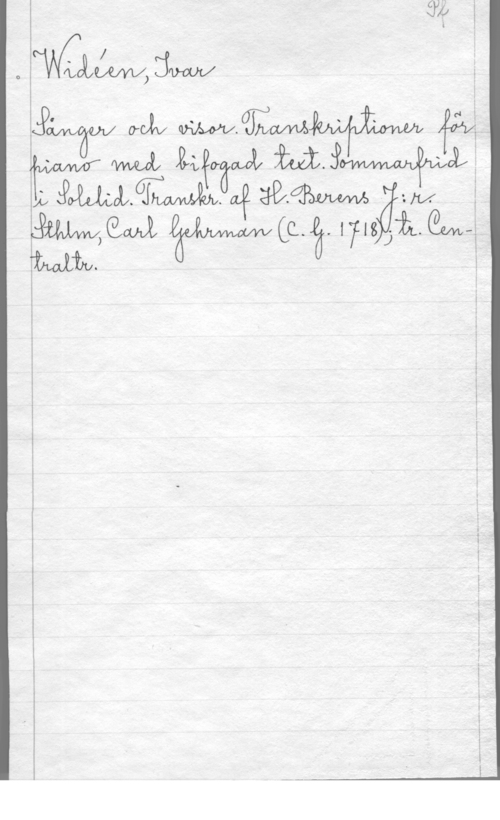 Pf
Widéen, Ivar
Sånger och visor. Transkriptioner för
piano med bifogad text. Sommarfrid
i Solelid. Transkr. af H. Berens J:r.
Sthlm, Carl Gehrman (C. G. 1718); tr. Cen-
traltr.